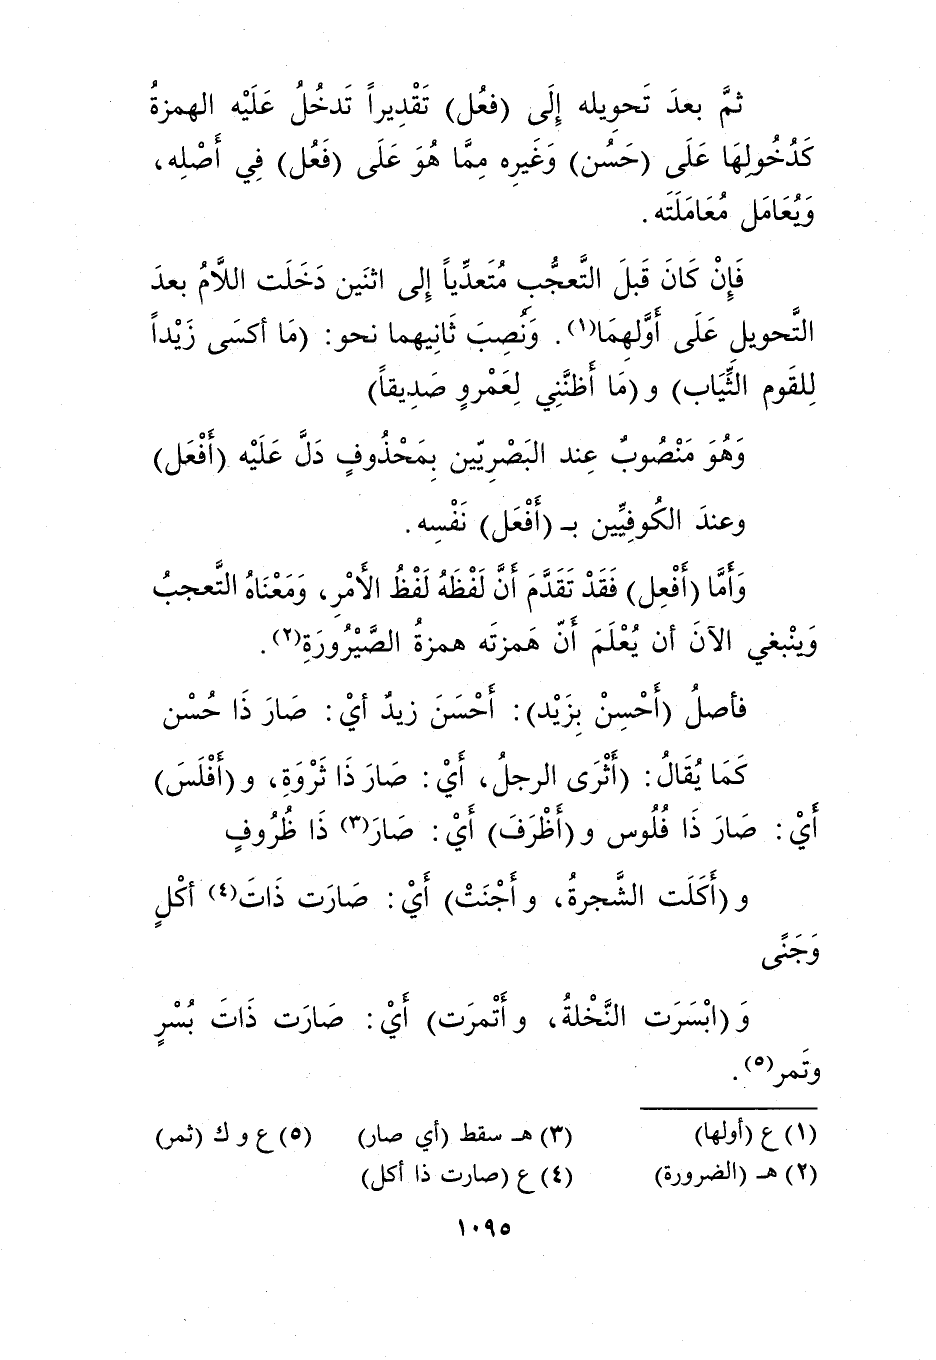 ثمَّ بعدَ تَحويله إِلَى (فعُل) تَقْدِيراً تَدخُلُ عَلَيْه الهمزةُ
كَدُخُولِهَا عَلَى (حَسُن) وَغَيرِه مِمَّا هُوَ عَلَى (فَعُل) فِي أَصْلِه،
وَيُعَامَل مُعَامَلَتَه.
فَإِنْ كَانَ قَبلَ التَّعجُّب مُتَعدِّياً إِلى اثنَين دَخَلَت اللاَّمُ بعدَ
التَّحويل عَلَى أَوَّلهِمَا(١). وَنُصِبَ ثَانِيهما نحو: (مَا أكسَى زَيْداً
لِلقَوم الثِّيَاب) و (مَا أَظنَّنِي لِعَمْروٍ صَدِيقاً)
وَهُوَ مَنْصُوبٌ عِند البَصْرِيّين بِمَحْذُوفٍ دَلَّ عَلَيْه (أَفْعَل)
وعندَ الكُوفِيِّين بـ (أَفْعَل) نَفْسِه.
وَأَمَّا (أَفْعِل) فَقَدْ تَقَدَّمَ أَنَّ لَفْظَهُ لَفْظُ الأَمْرِ، وَمَعْنَاهُ التَّعجبُ
وَيَنْبغي الآنَ أن يُعْلَمَ أَنّ هَمزتَه همزةُ الصَّيْرُورَةِ(٢).
فأصلُ (أَحْسِنْ بِزَيْد): أَحْسَنَ زيدٌ أيْ: صَارَ ذَا حُسْن
كَمَا يُقَالُ: (أَثْرَى الرجلُ، أَيْ: صَارَ ذَا ثَرْوَةٍ، و (أَفْلَسَ)
أَيْ: صَارَ ذَا فُلُوس و (أَظْرَفَ) أَيْ: صَارَ(٣) ذَا ظُرُوفٍ
و (أَكَلَت الشَّجرةُ، و أَجْنَتْ) أَيْ: صَارَت ذَاتَ(٤) أكْلٍ
وَجَنًى
وَ (ابْسَرَت النَّخْلةُ، و أَتْمرَت) أَيْ: صَارَت ذَاتَ بُسْرٍ
وتَمر(٥).
(١) ع (أولها) (٣) هـ سقط (أي صار) (٥) ع و ك (ثمر)
(٢) هـ (الضرورة) (٤) ع (صارت ذا أكل)
١٠٩٥